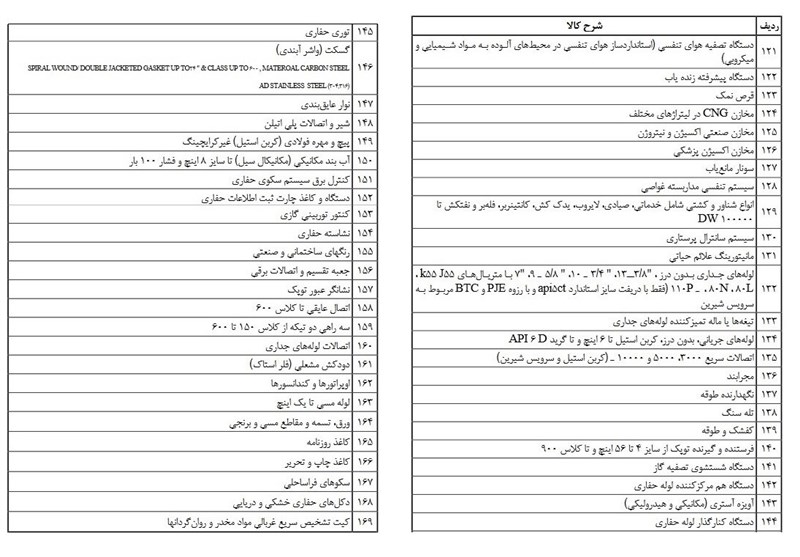 ردیف شرح کالا
۱۲۱ دستگاه تصفیه هوای تنفسی (استانداردساز هوای تنفسی در محیط‌های آلوده به مواد شیمیایی و
میکروبی)
۱۲۲ دستگاه پیشرفته زنده یاب
۱۲۳ قرص نمک
۱۲۴ مخازن CNG در لیتراژهای مختلف
۱۲۵ مخازن صنعتی اکسیژن و نیتروژن
۱۲۶ مخازن اکسیژن پزشکی
۱۲۷ سونار مانع‌یاب
۱۲۸ سیستم تنفسی مداربسته غواصی
۱۲۹ انواع شناور و کشتی شامل خدماتی، صیادی، لایروب، یدک کش، کانتینربر، فله‌بر و نفتکش تا
۱۰۰۰۰۰ DW
۱۳۰ سیستم سانترال پرستاری
۱۳۱ مانیتورینگ علائم حیاتی
۱۳۲ لوله‌های جداری بدون درز ، "۳/۸_۱۳، " ۳/۴ - ۱۰، " ۵/۸ - ۹، "۷ با متریال‌های k۵۵ J۵۵ ،
۸۰N ،۸۰L، _ ۱۱۰P (فقط با دریفت سایز استاندارد api۵ct و با رزوه PJE و BTC مربوط به
سرویس شیرین
۱۳۳ تیغه‌ها یا ماله تمیزکننده لوله‌های جداری
۱۳۴ لوله‌های جریانی، بدون درز، کربن استیل تا ۶ اینچ و تا گرید API ۶ D
۱۳۵ اتصالات سریع ۳۰۰۰، ۵۰۰۰ و ۱۰۰۰۰ ـ (کربن استیل و سرویس شیرین)
۱۳۶ مجرابند
۱۳۷ نگهدارنده طوقه
۱۳۸ تله سنگ
۱۳۹ کفشک و طوقه
۱۴۰ فرستنده و گیرنده توپک از سایز ۴ تا ۵۶ اینچ و تا کلاس ۹۰۰
۱۴۱ دستگاه شستشوی تصفیه گاز
۱۴۲ دستگاه هم مرکزکننده لوله حفاری
۱۴۳ آویزه آستری (مکانیکی و هیدرولیکی)
۱۴۴ دستگاه کنارگذار لوله حفاری
۱۴۵ توری حفاری
۱۴۶ گسکت (واشر آبندی)
SPIRAL WOUND: DOUBLE JACKETED GASKET UP TO۲۴" & CLASS UP TO ۶۰۰ , MATEROAL CARBON STEEL
AD STAINLESS STEEL (۳۰۴,۳۱۶)
۱۴۷ نوار عایق‌بندی
۱۴۸ شیر و اتصالات پلی اتیلن
۱۴۹ پیچ و مهره فولادی (کربن استیل) غیرکرایچینگ
۱۵۰ آب بند مکانیکی (مکانیکال سیل) تا سایز ۸ اینچ و فشار ۱۰۰ بار
۱۵۱ کنترل برق سیستم سکوی حفاری
۱۵۲ دستگاه و کاغذ چارت ثبت اطلاعات حفاری
۱۵۳ کنتور توربینی گازی
۱۵۴ نشاسته حفاری
۱۵۵ رنگهای ساختمانی و صنعتی
۱۵۶ جعبه تقسیم و اتصالات برقی
۱۵۷ نشانگر عبور توپک
۱۵۸ اتصال عایقی تا کلاس ۶۰۰
۱۵۹ سه راهی دو تیکه از کلاس ۱۵۰ تا ۶۰۰
۱۶۰ اتصالات لوله‌های جداری
۱۶۱ دودکش مشعلی (فلر استاک)
۱۶۲ اوپراتورها و کندانسورها
۱۶۳ لوله مسی تا یک اینچ
۱۶۴ ورق، تسمه و مقاطع مسی و برنجی
۱۶۵ کاغذ روزنامه
۱۶۶ کاغذ چاپ و تحریر
۱۶۷ سکوهای فراساحلی
۱۶۸ دکل‌های حفاری خشکی و دریایی
۱۶۹ کیت تشخیص سریع غربالی مواد مخدر و روان‌گردانها